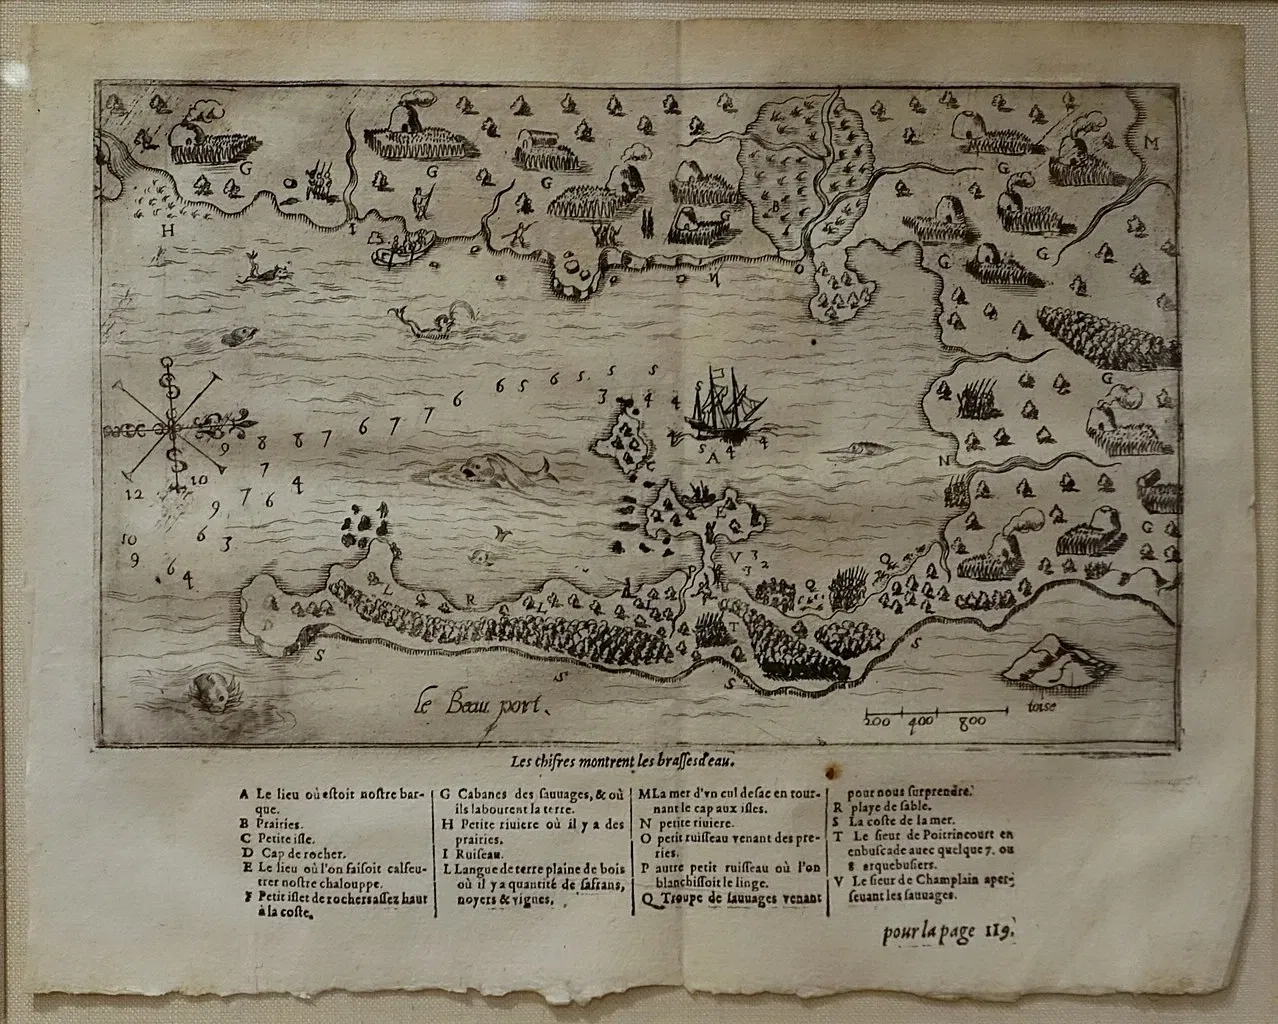 le Beau port.
200 400 800
toise
Les chifres montrent les brasses d'eau.
A Le lieu où estoit nostre bar-
que.
B Prairies.
C Petite isle.
D Cap de rocher.
E Le lieu où l'on faisoit calfeu-
trer nostre chalouppe.
F Petit islet de rochers assez haut
à la coste.
G Cabanes des sauuages, & où
ils labourent la terre.
H Petite riuiere où il y a des
prairies.
I Ruiseau.
L Langue de terre plaine de bois
où il y a quantité de safrans,
noyers & vignes.
M La mer d'vn cul de sac en tour-
nant le cap aux isles.
N petite riuiere.
O petit ruisseau venant des pre-
ries.
P autre petit ruisseau où l'on
blanchissoit le linge.
Q Troupe de sauuages venant
pour nous surprendre.
R playe de sable.
S La coste de la mer.
T Le sieur de Poitrincourt en
enbuscade auec quelque 7. ou
8 arquebusiers.
V Le sieur de Champlain aper-
seuant les sauuages.
pour la page 119.